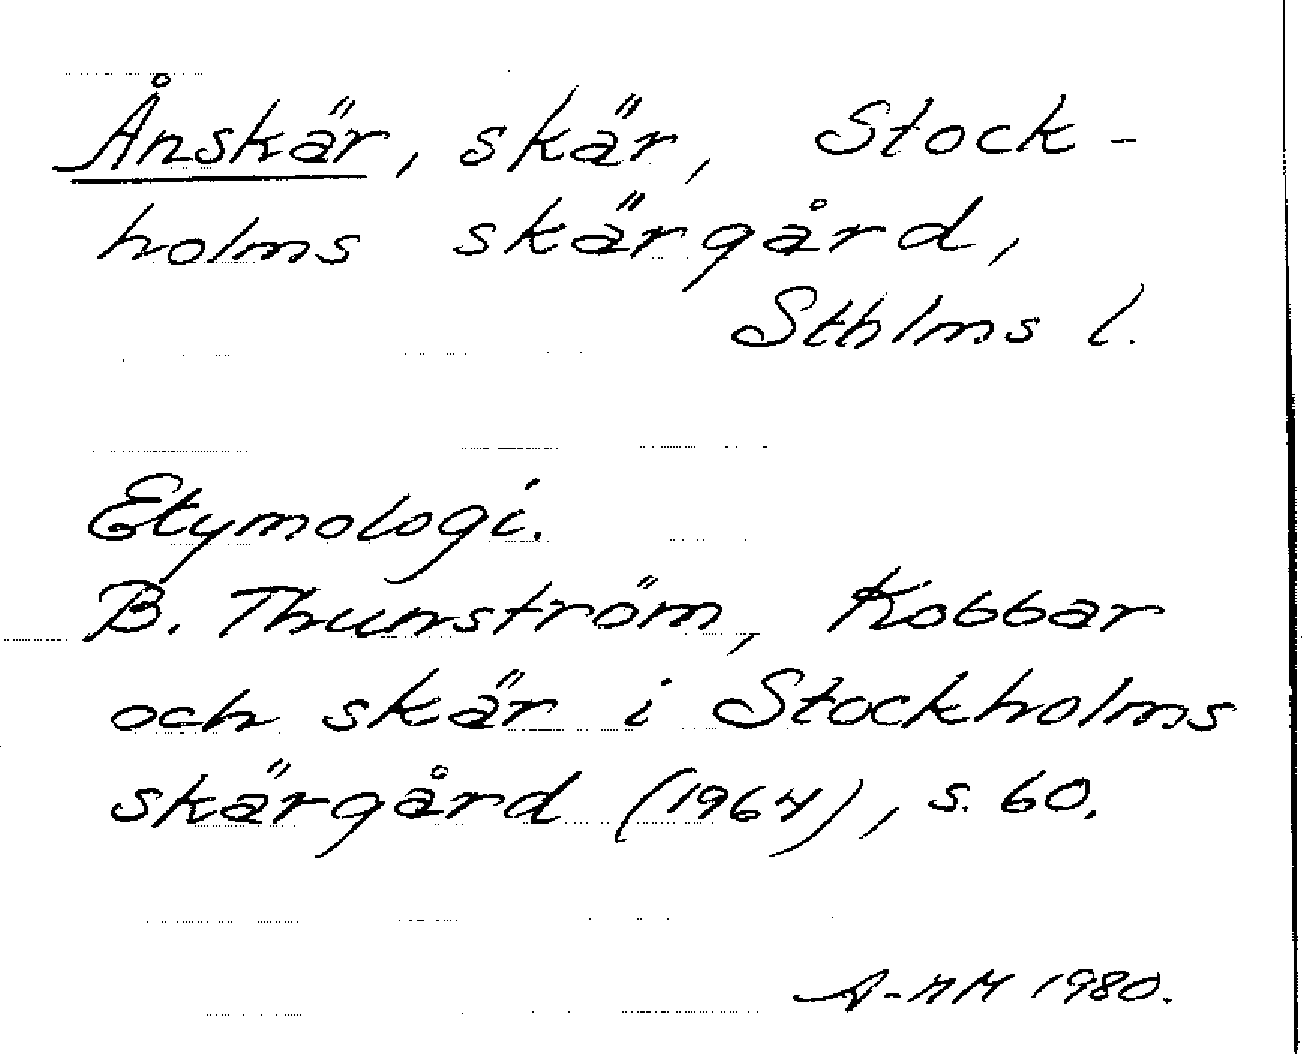 Ånskär, skär, Stock-
holms skärgård,
Sthlms l.
Etymologi.
B. Thunström, Kobbar
och skär i Stockholms
skärgård (1964), s. 60.
A-HM 1980.